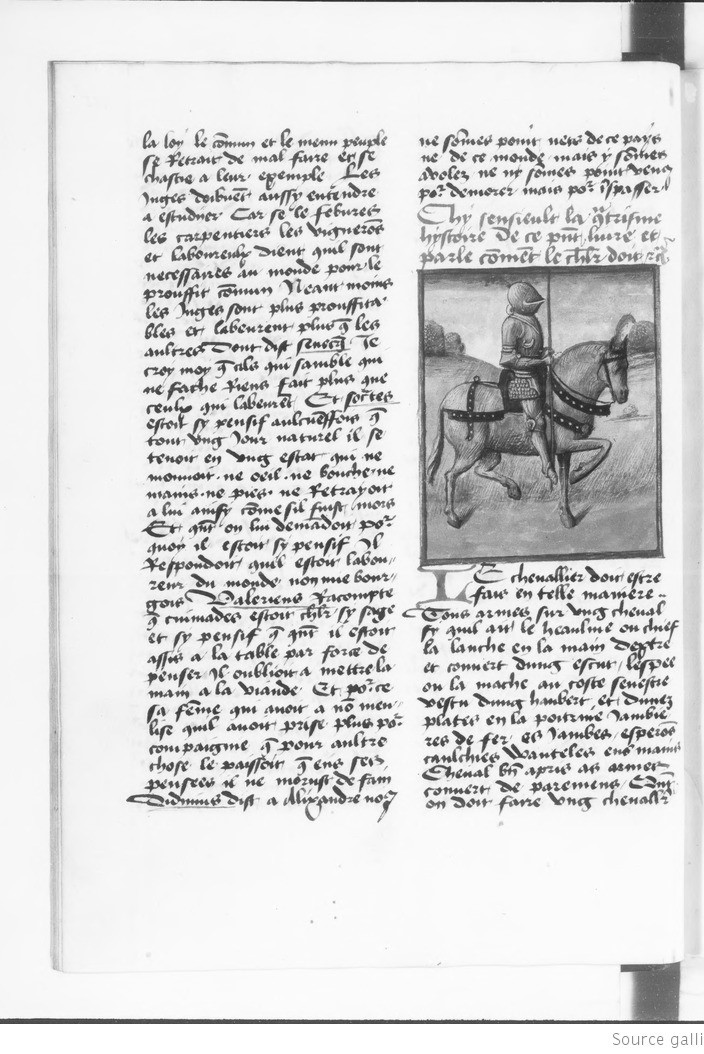 la loy le cõmun et le menu peuple
se Retrait de mal faire et se
chastie a leur exemple Les
Juges doibuẽt aussy entendre
a estudier Car se le febures
les carpentiers les vignerõs
et laboureulx dient quil sont
necessaires au monde pour le
prouffit cõmun Neant moins
les Juges sont plus prouffita
bles et labeurent plus q̃ les
aultres Dont dist senecq̃ Je
croy moy q̃ cilz qui samble qui
ne fache Riens fait plus que
ceulx qui labeurẽt Et socrates
estoit sy pensif aulcuneffois q̃
tout vng Jour naturel il se
tenoit en vng estat qui ne
mouuoit ne oeil ne bouche ne
mains ne pies ne Retrayoit
a lui ainsy cõme sil fuist mors
Et qñt on lui demãdoit por
quoy il estoit sy pensif Il
Respondoit quil estoit labou-
reur du monde non mie bour-
gois Valeriens Racompte
q̃ estoit chlr sy sage
et sy pensif q̃ qñt il estoit
assis a la table par force de
penser Il oublioit a mettre la
main a la viande Et por ce
sa fẽme qui auoit a nõ mer
lise quil auoit prise plus por
compaigne q̃ pour aultre
chose le paissoit q̃ ens ses
pensees il ne morust de fain
Didimus dist a Alixandre no9
ne sõmes point de ce pays
ne de ce monde mais y sõmes
ne ny sõmes point venus
por demorer mais por passer
Chy sensieult la qrtrisme
hystoire de ce pñt liure et
parle cõmẽt le chlr doit
LE cheuallier doit estre
fais en telle maniere
Tous armes sur vng cheual
sy quil ait le heaulme ou chief
la lanche en la main dextre
et couuert dung escut lespee
ou la mache au coste senestre
vestu dung haubert et dunes
plates en la poitrine Jambie
res de fer es Jambes esperõs
caulchies wanteles ens mains
Cheual bñ apris as armes
couuert de paremens Qñt
on doit faire vng cheuallr
Source galli